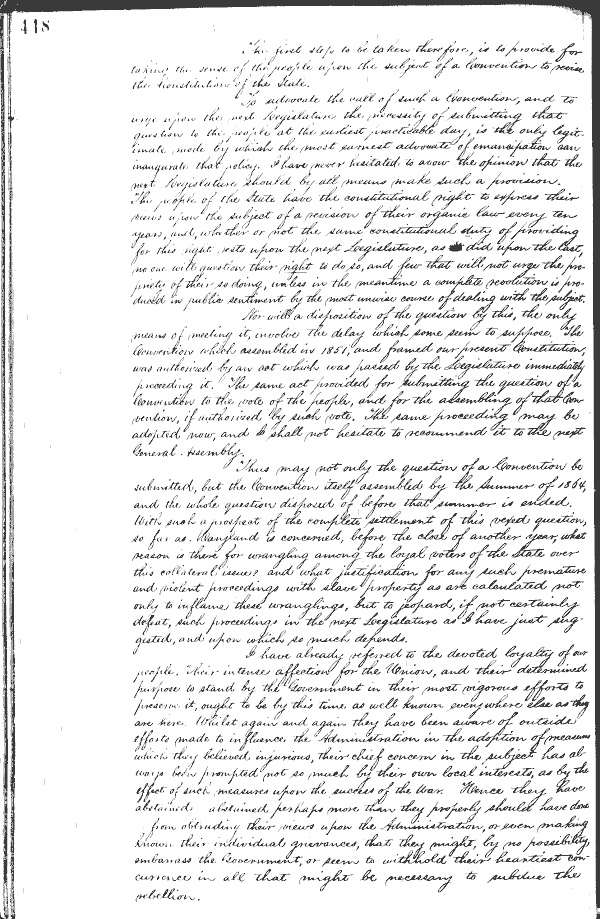 418
The first step to be taken therefore, is to provide for
taking the sense of the people upon the subject of a Convention to revise
the Constitution of the State.
To advocate the call of such a Convention, and to
urge upon the next Legislature the necessity of submitting that
question to the people at the earliest practicable day, is the only legit-
imate mode by which the most earnest advocate of emancipation can
inaugurate that policy. I have never hesitated to avow the opinion that the
next Legislature should by all means make such a provision.
The people of the State have the constitutional right to express their
views upon the subject of a revision of their organic law every ten
years, and, whether or not the same constitutional duty of providing
for this right rests upon the next Legislature, as did upon the last,
no one will question their right to do so, and few that will not urge the pro-
priety of their so doing, unless in the meantime a complete revolution is pro-
duced in public sentiment by the most unwise course of dealing with the subject.
Nor will a disposition of the question by this, the only
means of meeting it, involve the delay which some seem to suppose. The
Convention which assembled in 1851, and framed our present Constitution,
was authorized by an act which was passed by the Legislature immediately
preceeding it. The same act provided for submitting the question of a
Convention to the vote of the people, and for the assembling of that Con-
vention, if authorized by such vote. The same proceeding may be
adopted now, and I shall not hesitate to recommend it to the next
General Assembly.
Thus may not only the question of a Convention be
submitted, but the Convention itself assembled by the Summer of 1864,
and the whole question disposed of before that summer is ended.
With such a prospect of the complete settlement of this vexed question,
so far as Maryland is concerned, before the close of another year, what
reason is there for wrangling among the loyal voters of the State over
this collateral issue? and what justification for any such premature
and violent proceedings with slave property as are calculated not
only to inflame these wranglings, but to jeopard, if not certainly
defeat, such proceedings in the next Legislature as I have just sug-
gested, and upon which so much depends.
I have already referred to the devoted loyalty of our
people. Their intense affection for the Union, and their determined
purpose to stand by the Government in their most vigorous efforts to
preserve it, ought to be by this time as well known everywhere else as they
are here. Whilst again and again they have been aware of outside
efforts made to influence the Administration in the adoption of measures
which they believed injurious, their chief concern in the subject has al-
ways been prompted not so much by their own local interests, as by the
effect of such measures upon the success of the War. Hence they have
abstained, abstained perhaps more than they properly should have done
from obtruding their views upon the Administration, or even making
known their individual grievances, that they might, by no possibility
embarrass the Government, or seem to withhold their heartiest con-
currence in all that might be necessary to subdue the
rebellion.